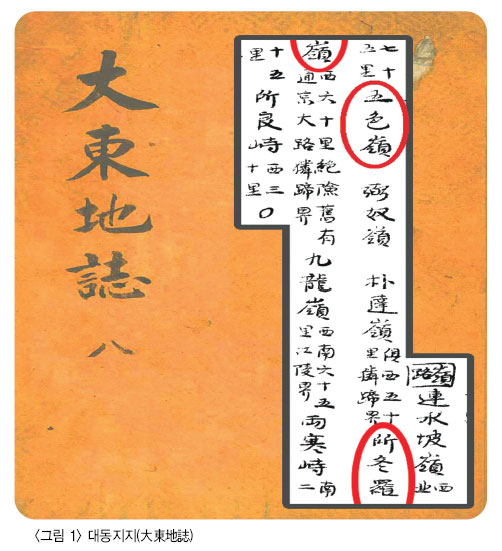 大東地誌 八
嶺路 連水坡嶺 西北
七十五里 五色嶺 弼奴嶺 朴達嶺 俱西五十里麟蹄界 所冬羅
嶺 西六十里絶險舊有通京大路麟蹄界 九龍嶺 西南六十五里江陵界 兩寒峙 南二
十五里 所良峙 西三十里 ○
〈그림 1〉 대동지지(大東輿誌)